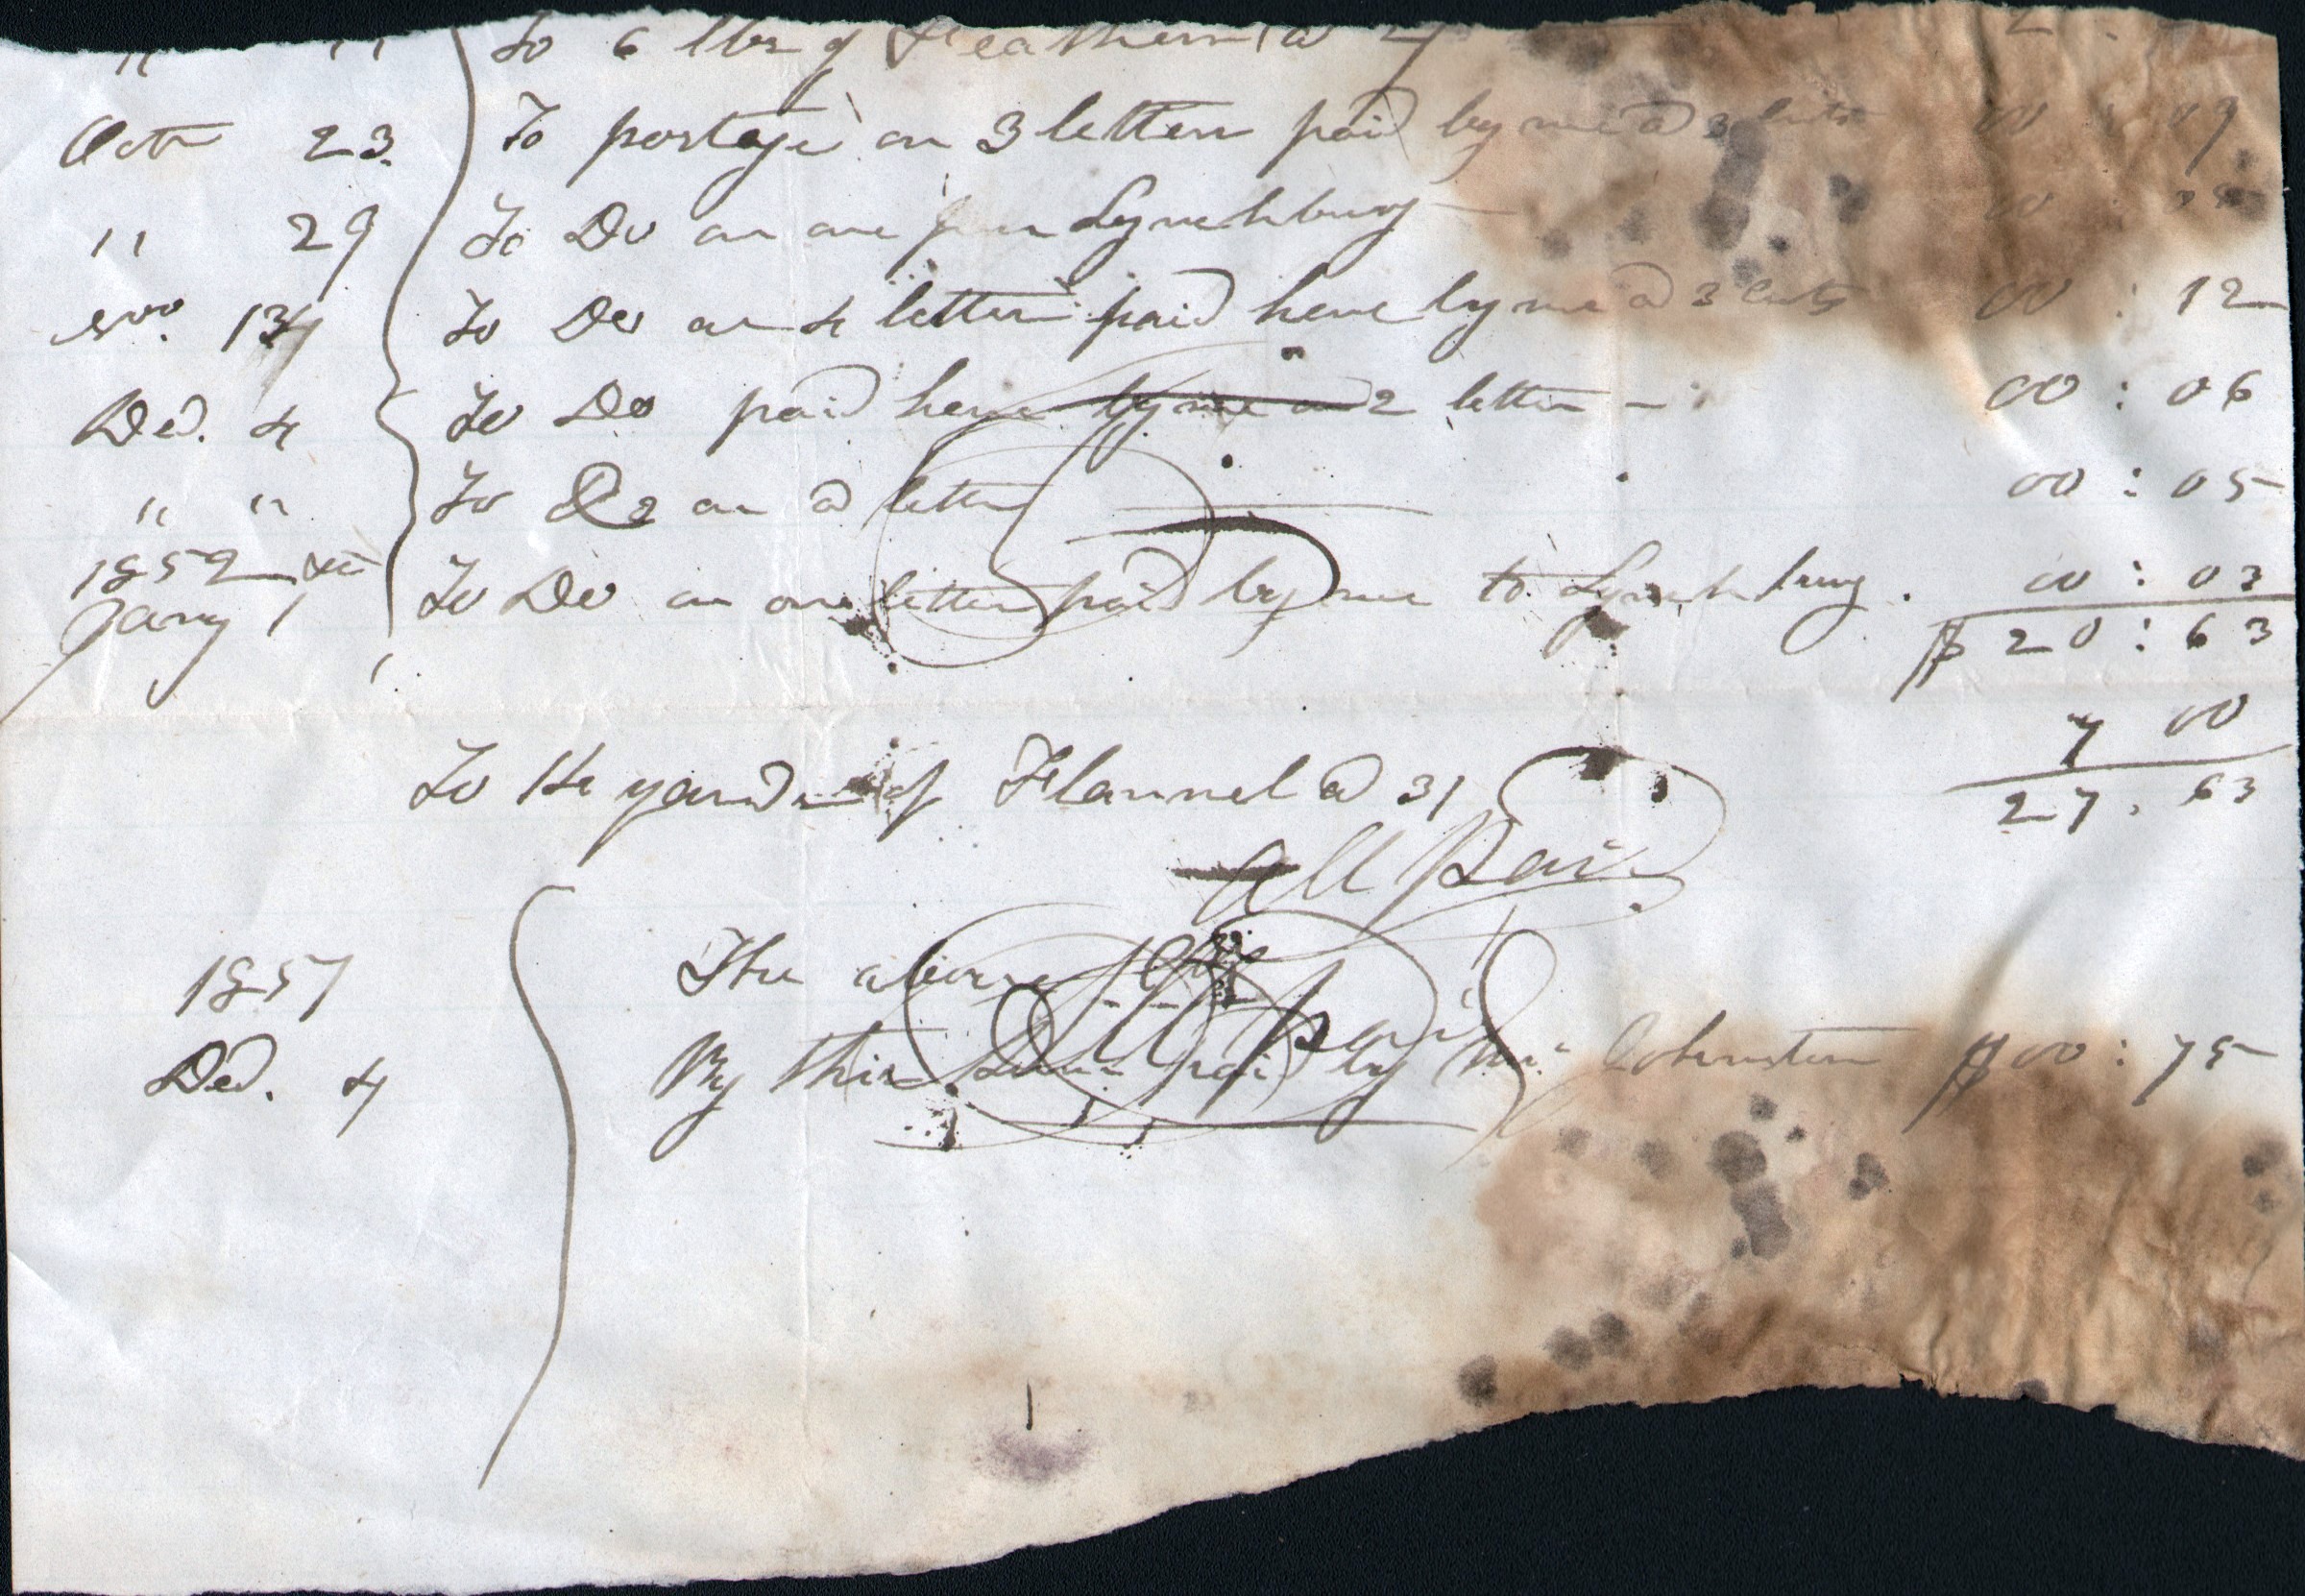 " " To 6 lbs of Feathers a 2
Octr 23. To postage on 3 letters paid by me a 3 cents 00 : 09
" 29 To Do on one from Lynchburg — 00
Nov. 13 To Do on 4 letters paid here by me a 3 cents 00 : 12
Ded. 4 To Do paid here by me on 2 letters — 00 : 06
" " To Do on a letter 00 : 05
1852
Jany 1 To Do on one letter paid by me to Lynchburg. 00 : 03
$ 20 : 63
7 00
To yards of Flannel a 31
27. 63
All Paid
1857 The above
all paid
Ded. 4 By this sum paid by Mr Johnston $ 00 : 75